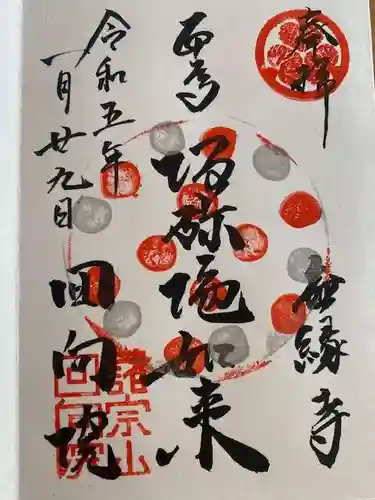 奉拝
無縁寺
阿弥陀如来
令和五年
一月廿九日
回向院
諸宗山
回向院